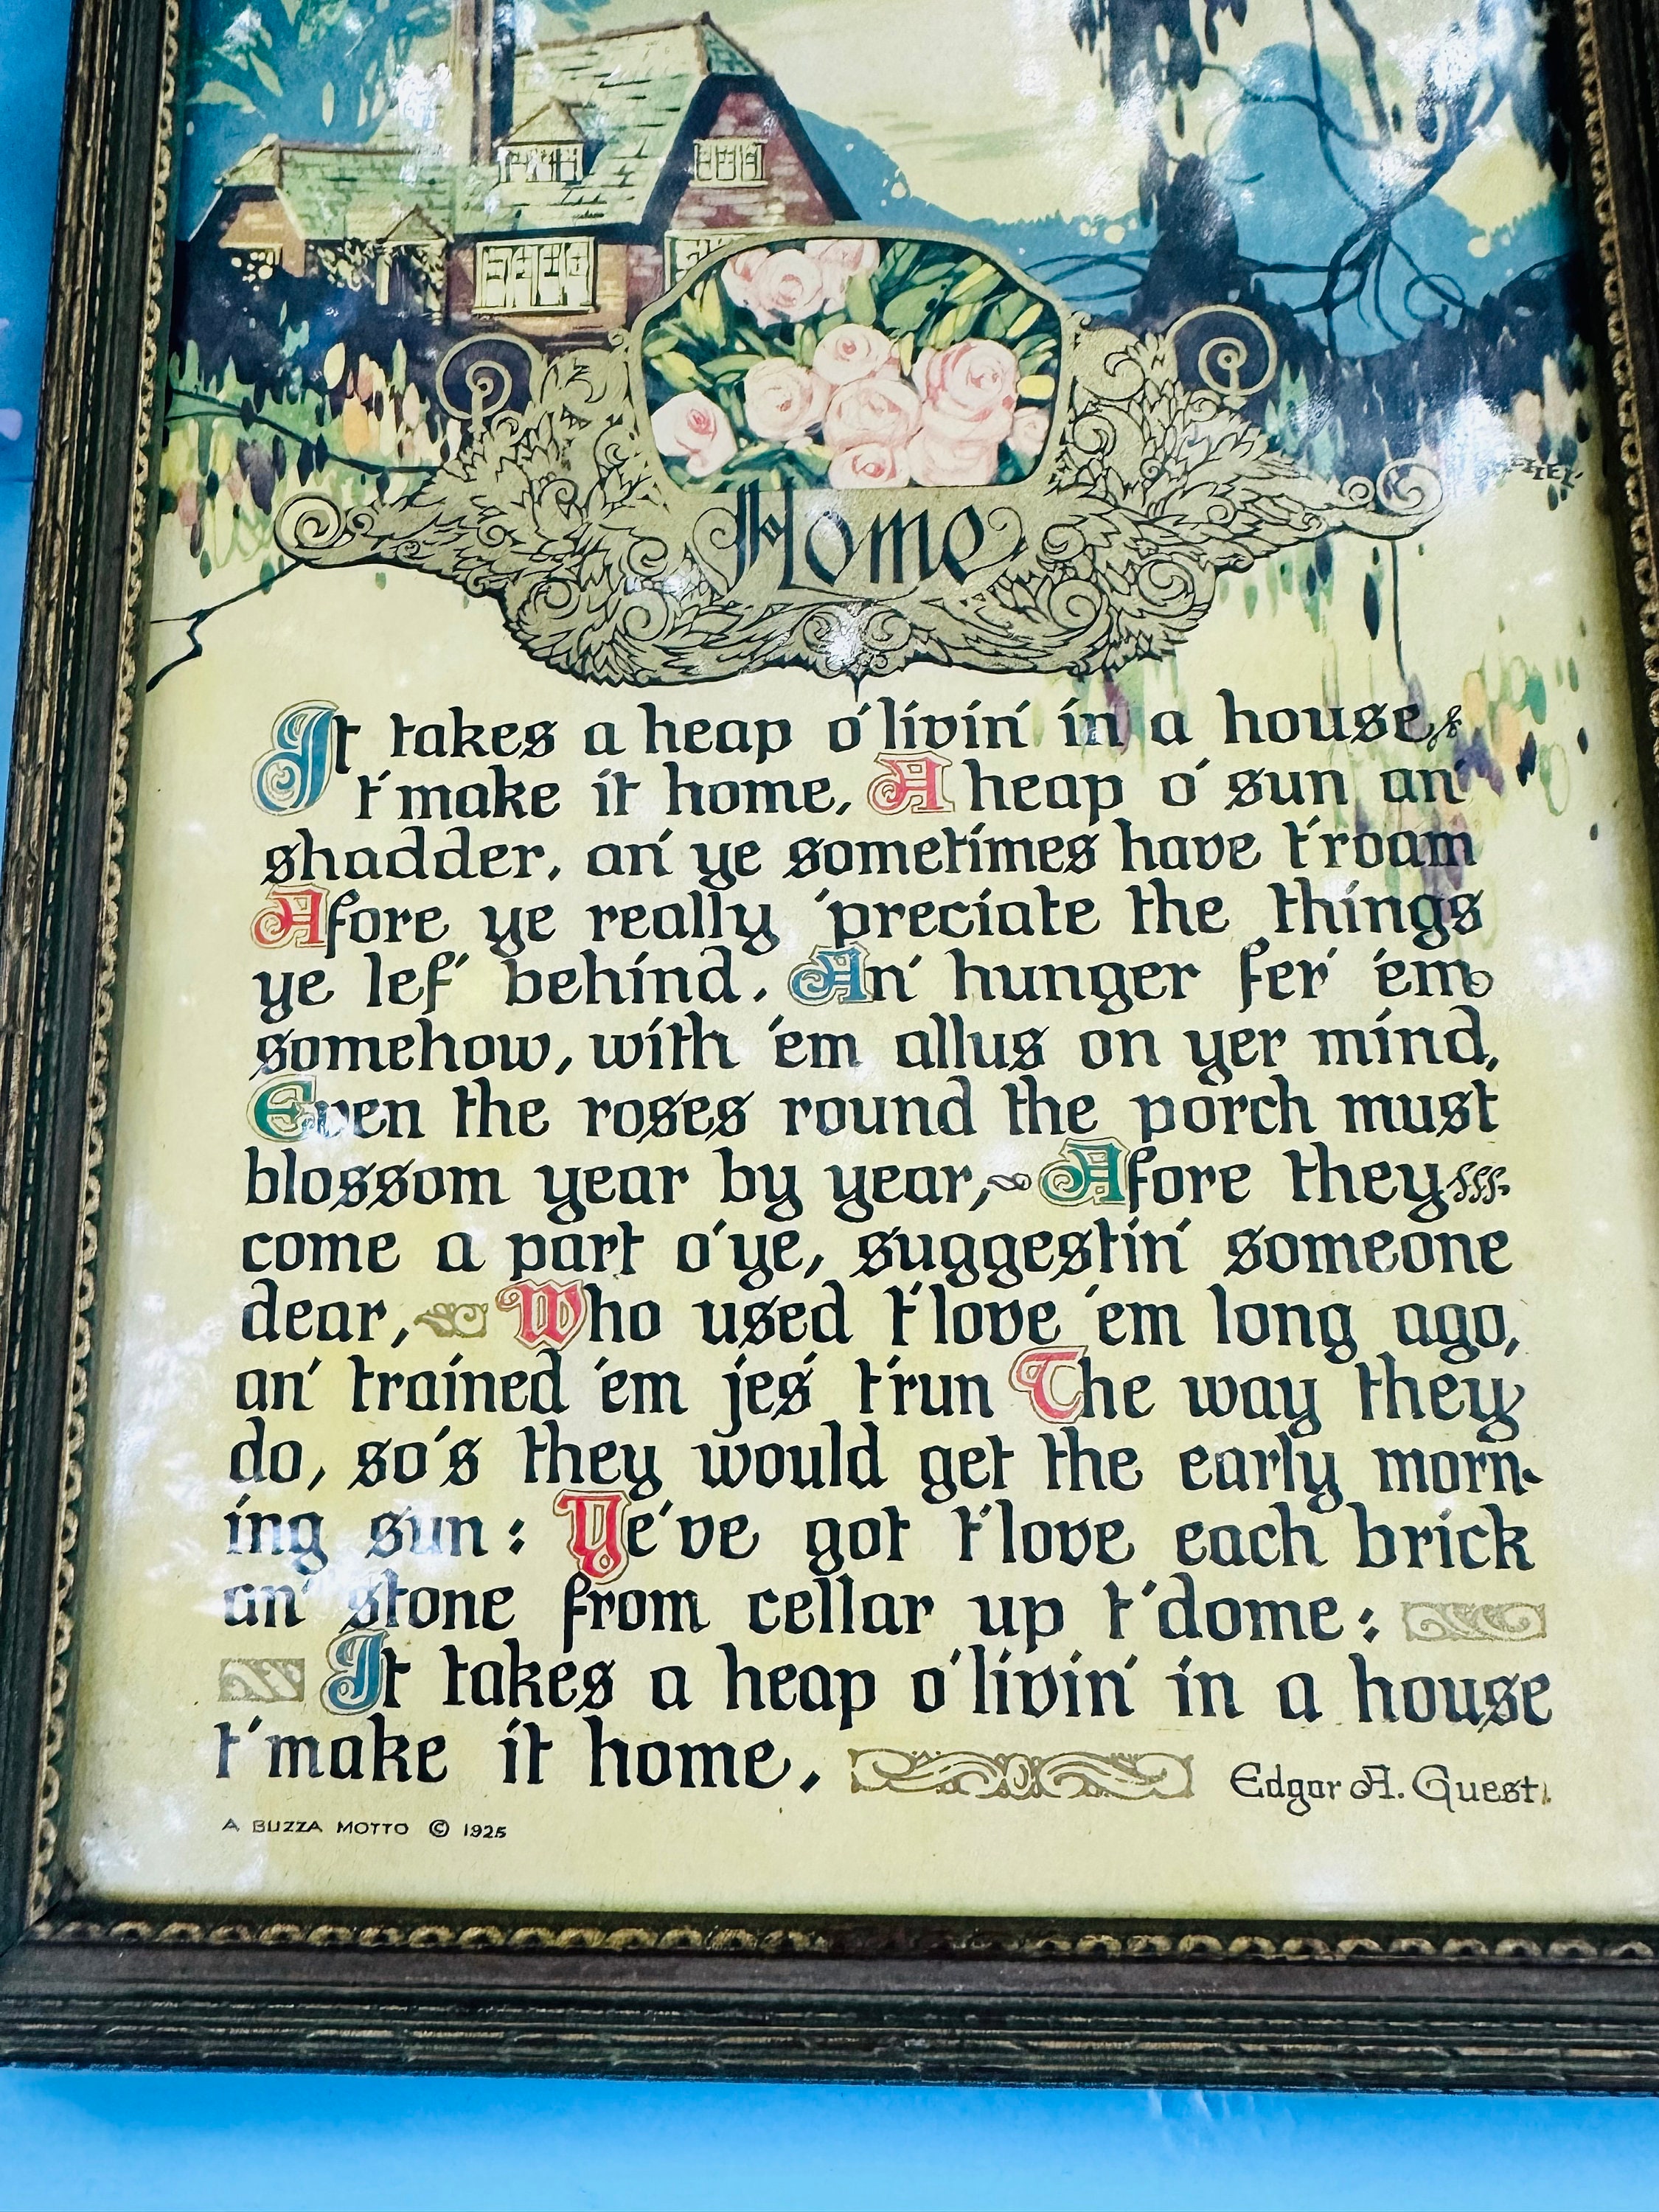 Home
It takes a heap o' livin' in a house
t' make it home, A heap o' sun an'
shadder, an' ye sometimes have t' roam
Afore ye really 'preciate the things
ye lef' behind, An' hunger fer' 'em
somehow, with 'em allus on yer mind,
Even the roses round the porch must
blossom year by year, Afore they
come a part o' ye, suggestin' someone
dear, Who used t' love 'em long ago,
an' trained 'em jes' t' run The way they
do, so's they would get the early morn-
ing sun: Ye've got t' love each brick
an' stone from cellar up t' dome:
It takes a heap o' livin' in a house
t' make it home,
Edgar A. Guest.
A BUZZA MOTTO © 1925